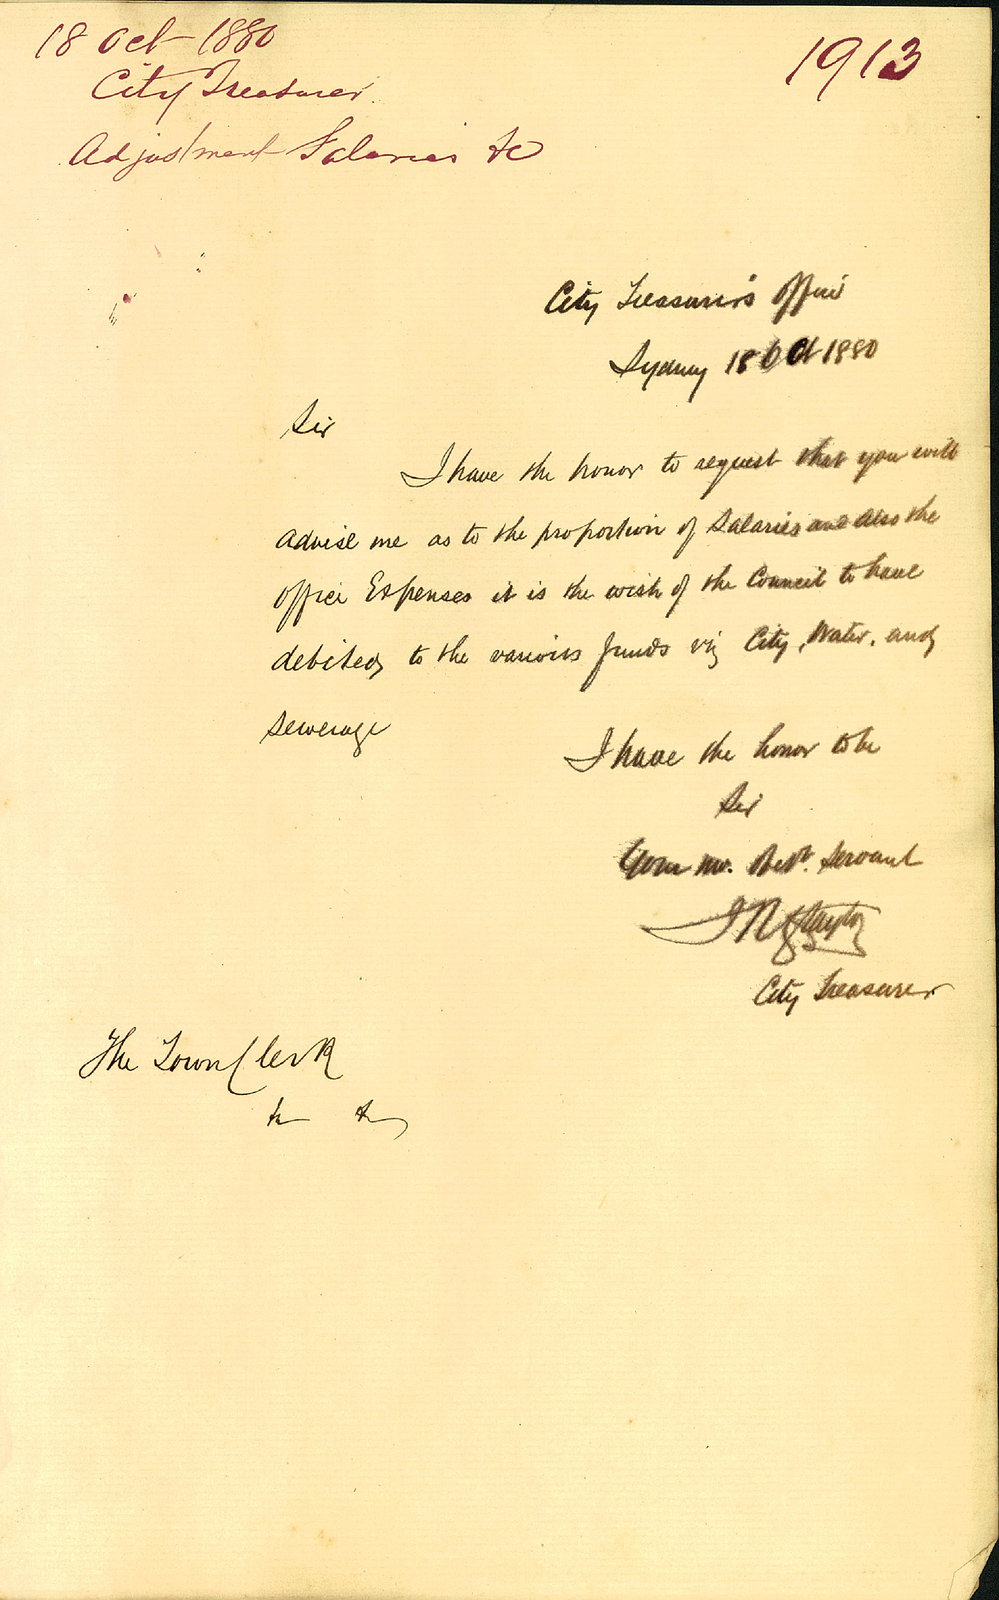 18 Oct 1880
City Treasurer
Adjustment Salaries &c
1913
City Treasurer's Office
Sydney 18 Oct 1880
Sir
I have the honor to request that you will
advise me as to the proportion of Salaries and also the
office Expenses it is the wish of the Council to have
debited to the various funds viz City, Water, and
Sewerage
I have the honor to be
Sir
Your mo. Obdt. Servant
City Treasurer
The Town Clerk
&c &c